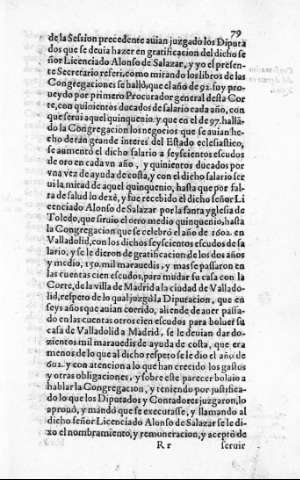 79
de la Session precedente auian juzgado los Diputa
dos que se deuia hazer en gratificacion del dicho se
ñor Licenciado Alonso de Salazar, y yo el presen-
te Secretario referi, como mirando los libros de las
Congregaciones se hallò, que el año de 92. fuy pro
ueydo por primero Procurador general desta Cor
te, con quinientos ducados de salario cada año, con
que serui aquel quinquenio y que en el de 97. hallã-
do la Congregacion los negocios que se auian he-
cho de tan grande interes del Estado eclesiastico,
se aumentò el dicho salario a seyscientos escudos
de oro en cada vn año, y quinientos ducados por
vna vez de ayuda de costa, y con el dicho salario ser
ui la mitad de aquel quinquenio, hasta que por fal-
ta de salud lo dexè, y fue recebido el dicho señor Li
cenciado Alonso de Salazar por la santa yglesia de
Toledo, que siruio el otro medio quinquenio, hasta
la Congregacion que se celebrò el año de 1602. en
Valladolid, con los dichos seyscientos escudos de sa
lario, y se le dieron de gratificacion de los dos años
y medio, 150. mil marauedis, y mas se passaron en
las cuentas cien escudos, para mudar su casa con la
Corte, de la villa de Madrid a la ciudad de Vallado-
lid, respeto de lo qual juzgò la Diputacion, que en
seys años que auian corrido, aliende de auer passa-
do en las cuentas otros cien escudos para boluer su
casa de Valladolid a Madrid, se le deuian dar do-
zientos mil marauedis de ayuda de costa, que era
menos de lo que al dicho respeto se le dio el año de
602. y con atencion a lo que han crecido los gastos
y otras obligaciones, y sobre este parecer boluio a
hablar la Congregacion, y teniendo por justifica-
do lo que los Diputados y Contadores juzgaron, lo
aprouò, y mandò que se executasse, y llamando al
dicho señor Licenciado Alonso de Salazar se le di-
xo el nombramiento, y remuneracion, y aceptò de
R r seruir